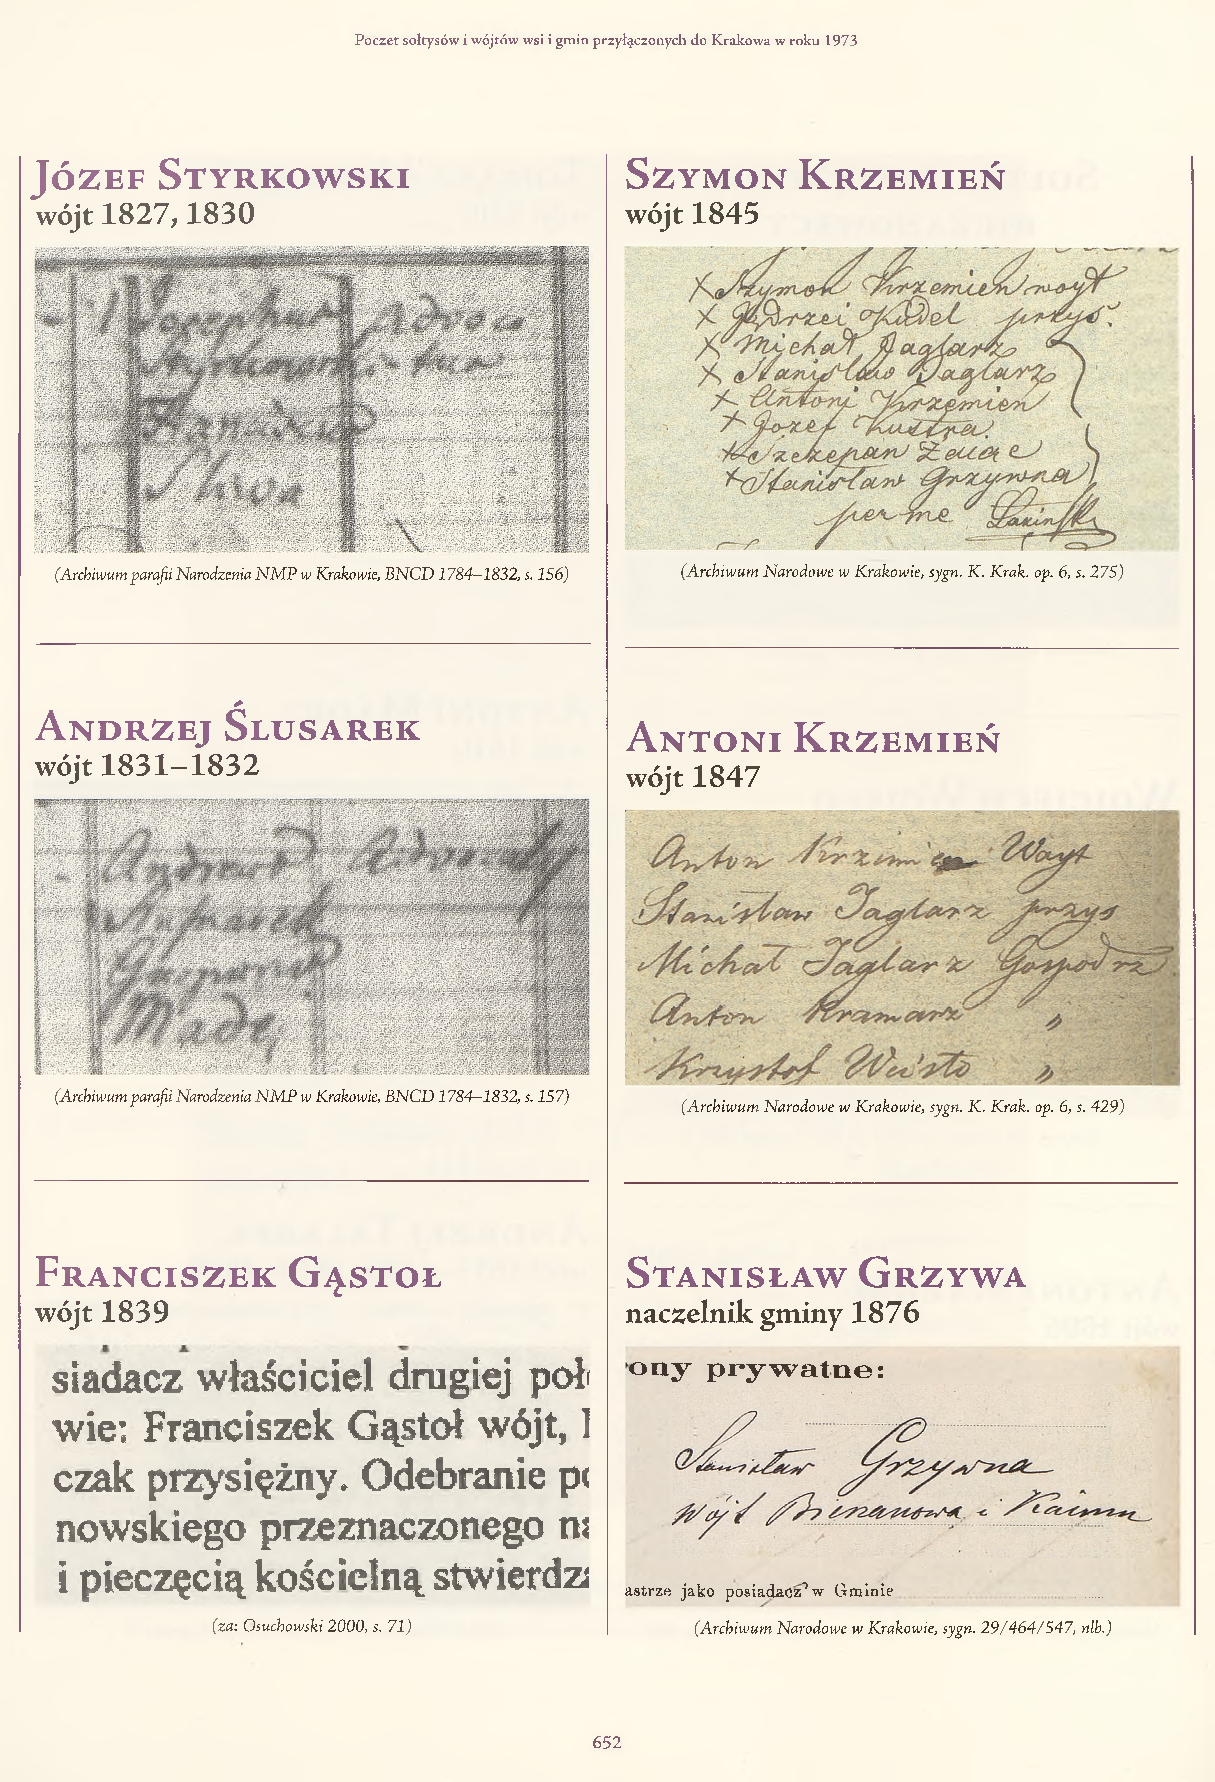 Poczet sołtysów i wójtów wsi i gmin przyłączonych do Krakowa w roku 1973
Józef Styrkowski
wójt 1827, 1830
Josephus Advoca
Styrkowski - tus
(Archiwum parafii Narodzenia NMP w Krakowie, BNCD 1784–1832, s. 156)
Andrzej Ślusarek
wójt 1831–1832
Andreas Advocaty
Mądę
(Archiwum parafii Narodzenia NMP w Krakowie, BNCD 1784–1832, s. 157)
Franciszek Gąstoł
wójt 1839
siadacz właściciel drugiej poł
wie: Franciszek Gąstoł wójt,
czak przysiężny. Odebranie
nowskiego przeznaczonego
i pieczęcią kościelną stwierdz
(za: Osuchowski 2000, s. 71)
Szymon Krzemień
wójt 1845
X Szymon Krzemień woyt
X Jędrzei Kudel przys.
X Michał Jaglarz
X Stanisław Jaglarz
X Antoni Krzemień
X Jozef Kustra.
X Szczepan Zaiąc
X Stanisław Grzywna
per me
(Archiwum Narodowe w Krakowie, sygn. K. Krak. op. 6, s. 275)
Antoni Krzemień
wójt 1847
Anton Krzemien Wayt
Stanisław Jaglarz przys
Michał Jaglarz Gospodrz
Anton Kramarz "
Krzystof Weisto "
(Archiwum Narodowe w Krakowie, sygn. K. Krak. op. 6, s. 429)
Stanisław Grzywa
naczelnik gminy 1876
ony prywatne:
Stanisław Grzywna
Wójt Bieżanowa i Kaimu
astrze jako posiadacz w Gminie
(Archiwum Narodowe w Krakowie, sygn. 29/464/547, nlb.)
652